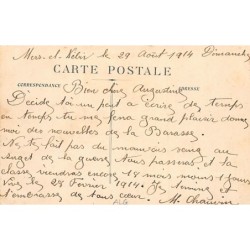 Mers-el-Kébir le 29 Août 1914 Dimanche
CARTE POSTALE
CORRESPONDANCE ADRESSE
Bien cher Augustin
Décide toi un peut a écrire de temps
en temps tu me fera grand plaisir donne
moi des nouvelles de la Barasse.
Ne te fait pas du mauvais sang au
sujet de la guerre. Nous passerons et la
classe viendra encore 18 mois moins 1 jours
Vive le 28 Février 1914. Je termine et
t'embrasse de tous cœur. M. Chauvin